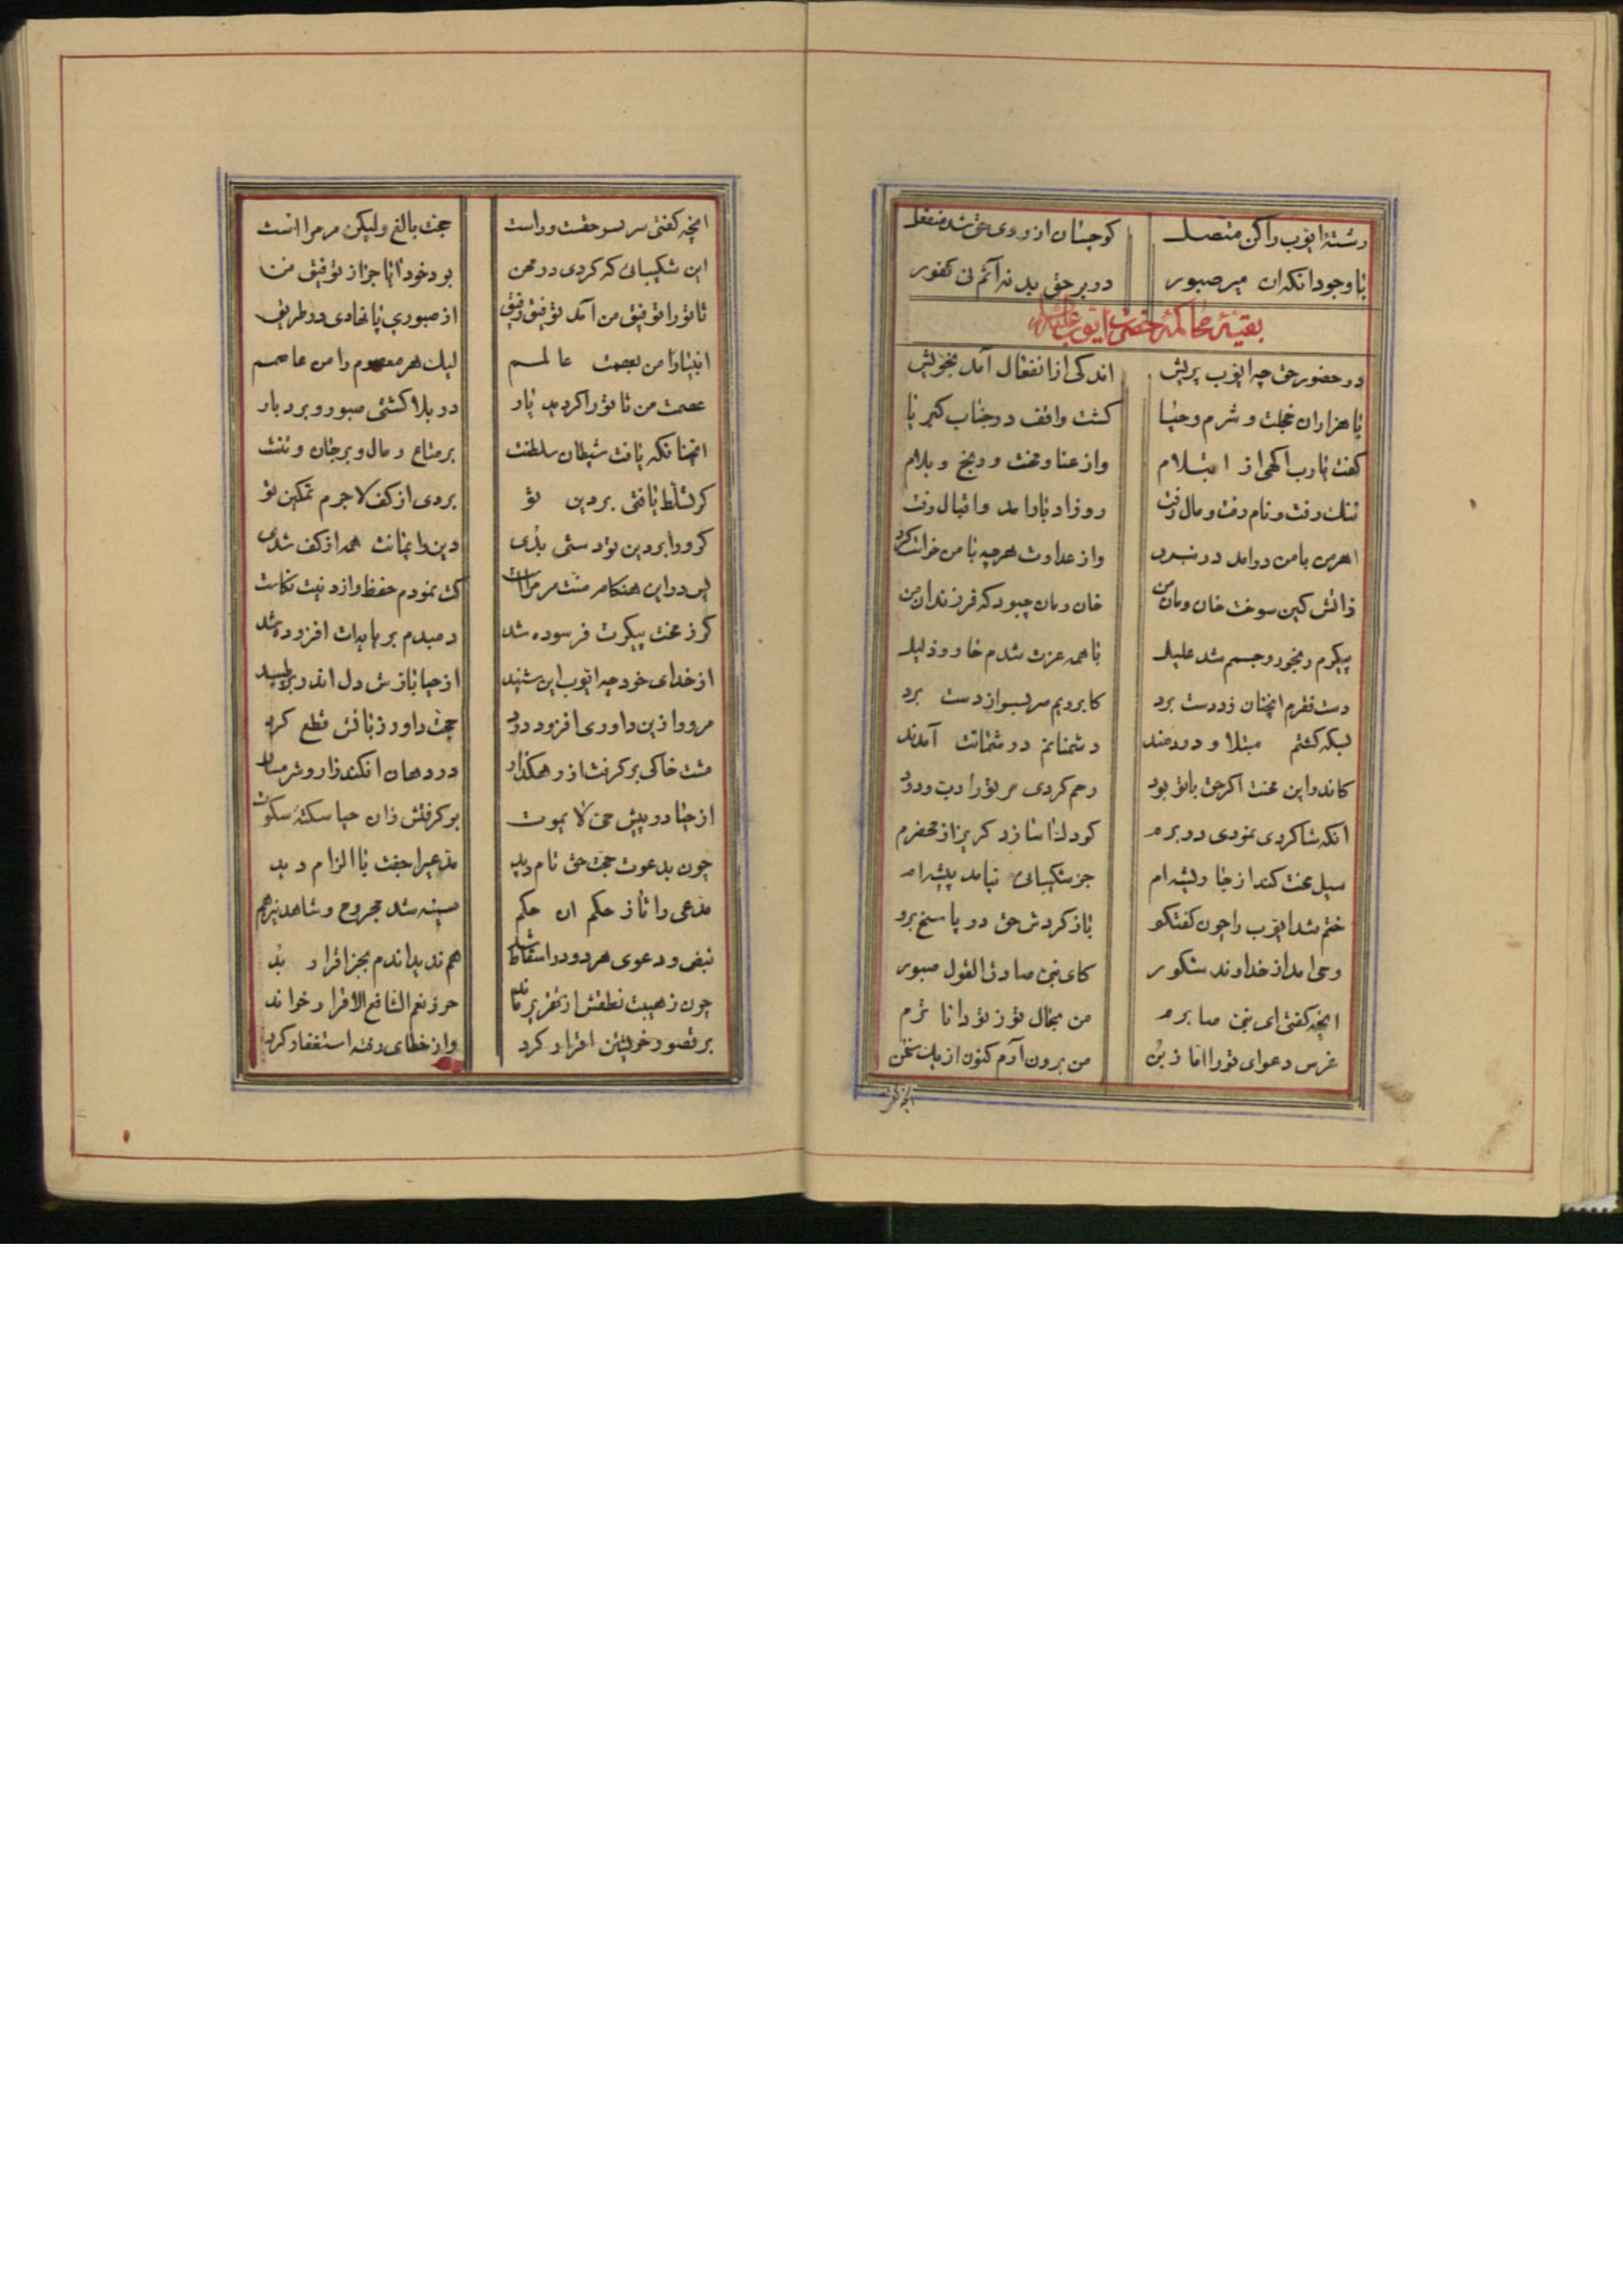 رشتهٔ ایوب را کن متصل کو چسان از روی حق شد منفعل
با وجود آنکه آن میر صبور در بر حق بد نه آثم نی کفور
بقیهٔ محاکمهٔ حضرت ایوب علیه
در حضور حق چه ایوب پریش اندکی از انفعال آمد بخویش
با هزاران خجلت و شرم و حیا گشت واقف در جناب کبریا
گفت یا رب آگهی از ابتلام واز عنا و محنت و رنج و بلام
ننک رفت و نام رفت و مال رفت روز ادبار آمد و اقبال رفت
اهرمن با من درامد در نبرد واز عداوت هرچه با من خواست کرد
ز آتش کین سوخت خان و مان من خان و مان چبود که فرزندان من
پیکرم رنجور و جسمم شد علیل با همه عزت شدم خار و ذلیل
دست فقرم آنچنان زد دست برد کابرویم سر بسر از دست برد
بسکه گشتم مبتلا و دردمند دشمنانم در شماتت آمدند
کاندر این محنت اگر حق با تو بود رحم کردی مر تو را رب ودود
آنکه شاکردی نمودی در برم کودک آسا زد کریز از محضرم
سیل محنت کند از جا ریشه‌ام جز شکیبائی نیامد پیشه‌ام
ختم شد ایوب را چون گفتگو باز کردش حق در پاسخ برو
وحی امد از خداوند شکور کای نبی صادق القول صبور
انچه گفتی ای نبی صابرم من بحال تو ز تو داناترم
غرس دعوای تو را اما ز بن من برون آرم کنون از یک سخن
انچه گفتی سر بسر حقست و راست حجت بالغ ولیکن مر مراست
این شکیبائی که کردی در محن بود خود آیا جز از توفیق من
تا تو را توفیق من آمد رفیق از صبوری پا نهادی در طریق
انبیا را من بعصمت عالمم لیک هر معصوم را من عاصمم
عصمت من تا تو را کردید یار در بلا گشتی صبور و بردبار
انچنانکه یافت شیطان سلطنت بر متاع و مال و بر جان و تنت
گر تسلط یافتی بر دین تو بردی از کف لاجرم تمکین تو
گر ورا بر دین تو دستی بدی دین و ایمانت همه از کف شدی
پس در این هنکام منت مر مراست کت نمودم حفظ و از دینت نکاست
گر ز محنت پیکرت فرسوده شد دمبدم بر پایه‌ات افزوده شد
از خدای خود چه ایوب این شنید از حیا بازش دل اندر بر طپید
مر ورا زین داوری افزود درد حجت داور زبانش قطع کرد
مشت خاکی بر گرفت از رهکذار در دهان افکند زار و شرمسار
از حیا در پیش حی لا یموت بر گرفتش زان حیا سکتهٔ سکوت
چون بدعوت حجت حق تام دید مدعی را جفت با الزام دید
مدعی را تا ز حکم ان حکم سینه شد مجروح و شاهد نیز هم
نبض و دعوی هر دو در اسقاط شد هم ندید اندم بجز اقرار بد
چون ز هیبت نطقش از تقریر ماند حرز نعم الشافع الاقرار خواند
بر قصور خویشتن اقرار کرد واز خطای رفته استغفار کرد